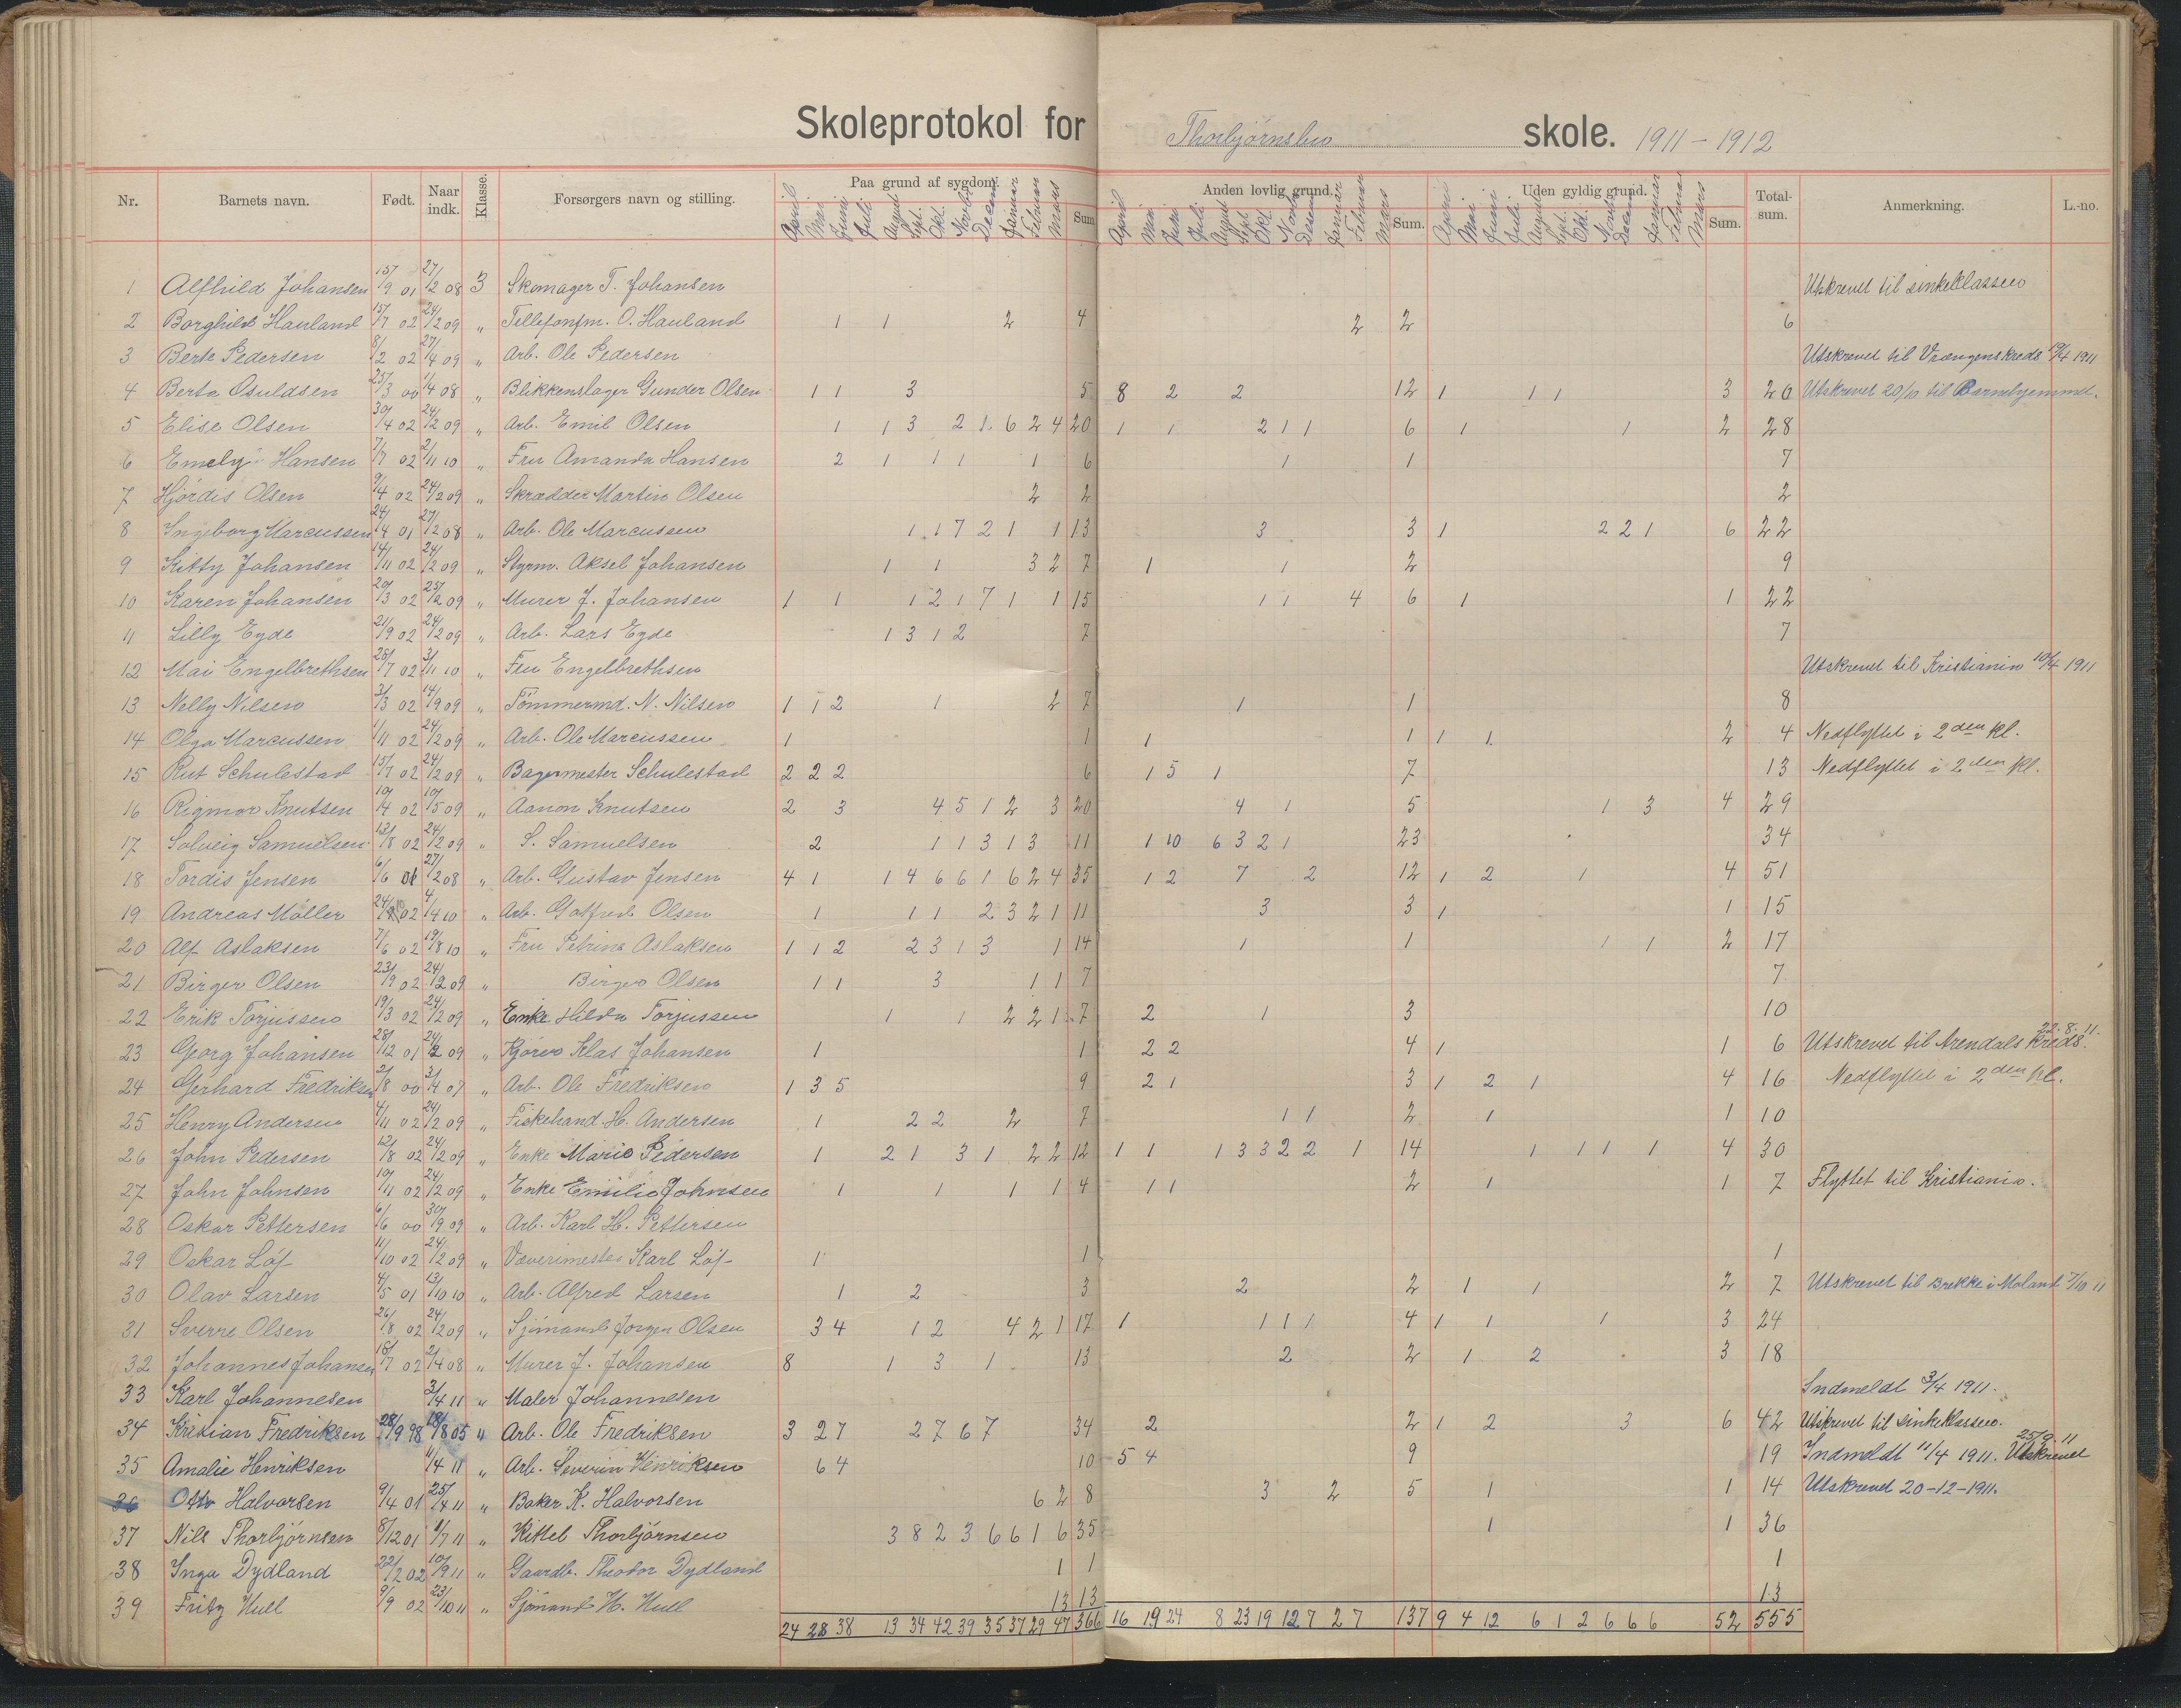 Skoleprotokol for Thorbjörnsbu skole. 1911 – 1912
Nr. Barnets navn. Født. Naar indk. Klasse. Forsørgers navn og stilling. Paa grund af sygdom. Sum Anden lovlig grund. Sum. Uden gyldig grund. Sum. Total-sum. Anmerkning. L.-no.
April Mai Juni Juli August Sept. Okt. Novbr. Decem Januar Februar Mars April Mai Juni Juli August Sept Okt. Novbr Decem Januar Februar Mars April Mai Juni Juli August Sept. Okt. Novbr Decem Januar Februar Mars
1 Alfhild Johansen 15/9 01 27/2 08 3 Skomager T. Johansen Utskrevet til sinkeklassen
2 Borghild Hauland 15/7 02 24/2 09 „ Tellefonfm. O. Hauland 1 1 2 4 2 2 6
3 Berte Pedersen 8/2 02 27/4 09 „ Arb. Ole Pedersen Utskrevet til Vrængenskreds 19/4 1911
4 Berta Osuldsen 25/3 00 1/4 08 „ Blikkenslager Gunder Olsen 1 1 3 5 8 2 2 12 1 1 1 3 20 Utskrevet 20/10 til Barnehjemmet.
5 Elise Olsen 30/4 02 24/2 09 „ Arb. Emil Olsen 1 1 3 2 1 6 2 4 20 1 1 2 1 1 6 1 1 2 28
6 Emely Hansen 7/7 02 2/11 10 „ Fru Amanda Hansen 2 1 1 1 1 6 1 1 7
7 Hjördis Olsen 9/4 02 24/2 09 „ Skrædder Martin Olsen 2 2 2
8 Ingeborg Marcussen 24/4 01 27/2 08 „ Arb. Ole Marcussen 1 1 7 2 1 1 13 3 3 1 2 2 1 6 22
9 Kitty Johansen 14/11 02 24/2 09 „ Styrm. Aksel Johansen 1 1 3 2 7 1 1 2 9
10 Karen Johansen 20/3 02 25/2 09 „ Murer J. Johansen 1 1 1 2 1 7 1 1 15 1 1 4 6 1 1 22
11 Lilly Eyde 21/9 02 24/2 09 „ Arb. Lars Eyde 1 3 1 2 7 7
12 Mai Engelbrethsen 28/7 02 3/11 10 „ Fru Engelbrethsen Utskrevet til Kristiania 10/4 1911
13 Nelly Nilsen 3/3 02 14/9 09 „ Tömmermd. N. Nilsen 1 1 2 1 2 7 1 1 8
14 Olga Marcussen 1/11 02 24/2 09 „ Arb. Ole Marcussen 1 1 1 1 1 1 2 4 Nedflyttet i 2den kl.
15 Rut Schulestad 15/7 02 24/2 09 „ Bagermester Schulestad 2 2 2 6 1 5 1 7 13 Nedflyttet i 2den kl.
16 Rigmor Knutsen 10/4 02 10/5 09 „ Aanon Knutsen 2 3 4 5 1 2 3 20 4 1 5 1 3 4 29
17 Solveig Samuelsen 13/8 02 24/2 09 „ S. Samuelsen 2 1 1 3 1 3 11 1 10 6 3 2 1 23 34
18 Tordis Jensen 6/6 01 27/2 08 „ Arb. Gustav Jensen 4 1 1 4 6 6 1 6 2 4 35 1 2 7 2 12 1 2 1 4 51
19 Andreas Möller 02 4/4 10 „ Arb. Gotfred Olsen 1 1 1 2 3 2 1 11 3 3 1 1 15
20 Alf Aslaksen 7/6 02 19/8 10 „ Fru Petrina Aslaksen 1 1 2 2 3 1 3 1 14 1 1 1 1 2 17
21 Birger Olsen 23/9 02 24/2 09 „ Birger Olsen 1 1 3 1 1 7 7
22 Erik Torjussen 19/3 02 24/2 09 „ Enke Hilda Torjussen 1 1 2 2 1 7 2 1 3 10
23 Georg Johansen 28/12 01 24/2 09 „ Kjörer Klas Johansen 1 1 2 2 4 1 1 6 Utskrevet til Arendals Kreds. 22.8.11.
24 Gerhard Fredriksen 2/8 00 3/4 07 „ Arb. Ole Fredriksen 1 3 5 9 2 1 3 1 2 1 4 16 Nedflyttet i 2den kl.
25 Henry Andersen 4/11 02 24/2 09 „ Fiskehand. H. Andersen 1 2 2 2 7 1 1 2 1 1 10
26 John Pedersen 12/8 02 24/2 09 „ Enke Marie Pedersen 1 2 1 3 1 2 2 12 1 1 1 3 3 2 2 1 14 1 1 1 1 4 30
27 John Johnsen 10/11 02 24/2 09 „ Enke Emilie Johnsen 1 1 1 1 4 1 1 2 1 1 7 Flyttet til Kristiania.
28 Oskar Pettersen 6/6 00 30/9 09 „ Arb. Karl H. Pettersen
29 Oskar Löf 11/10 02 24/2 09 „ Væverimester Karl Löf 1 1 1
30 Olav Larsen 4/5 01 13/10 10 „ Arb. Alfred Larsen 1 2 3 2 2 1 1 2 7 Utskrevet til Brekke i Moland 7/10 11
31 Sverre Olsen 26/8 02 24/2 09 „ Sjömand Jörgen Olsen 3 4 1 2 4 2 1 17 1 1 1 1 4 1 1 1 3 24
32 Johannes Johansen 18/7 02 2/4 08 „ Murer J. Johansen 8 1 3 1 13 2 2 1 2 3 18
33 Karl Johannesen 3/4 11 „ Maler Johannesen Indmeldt 3/4 1911.
34 Kristian Fredriksen 28/9 98 18/8 05 „ Arb. Ole Fredriksen 3 2 7 2 7 6 7 34 2 2 1 2 3 6 42 Utskrevet til sinkeklassen.
35 Amalie Henriksen 11/4 11 „ Arb. Severin Henriksen 6 4 10 5 4 9 19 Indmeldt 11/4 1911. Utskrevet 25/9 11
36 Otto Halvorsen 9/4 01 25/4 11 „ Baker K. Halvorsen 6 2 8 3 2 5 1 1 14 Utskrevet 20-12-1911.
37 Nils Thorbjörnsen 8/12 01 1/7 11 „ Kittel Thorbjörnsen 3 8 2 3 6 6 1 6 35 1 1 36
38 Inga Dydland 22/2 02 10/9 11 „ Gaardb. Theodor Dydland 1 1 1
39 Fritz Hull 9/9 02 23/10 11 „ Sjömand H. Hull 13 13 13
24 28 38 13 34 42 39 35 37 29 47 366 16 19 24 8 23 19 12 7 2 7 137 9 4 12 6 1 2 6 6 6 52 555